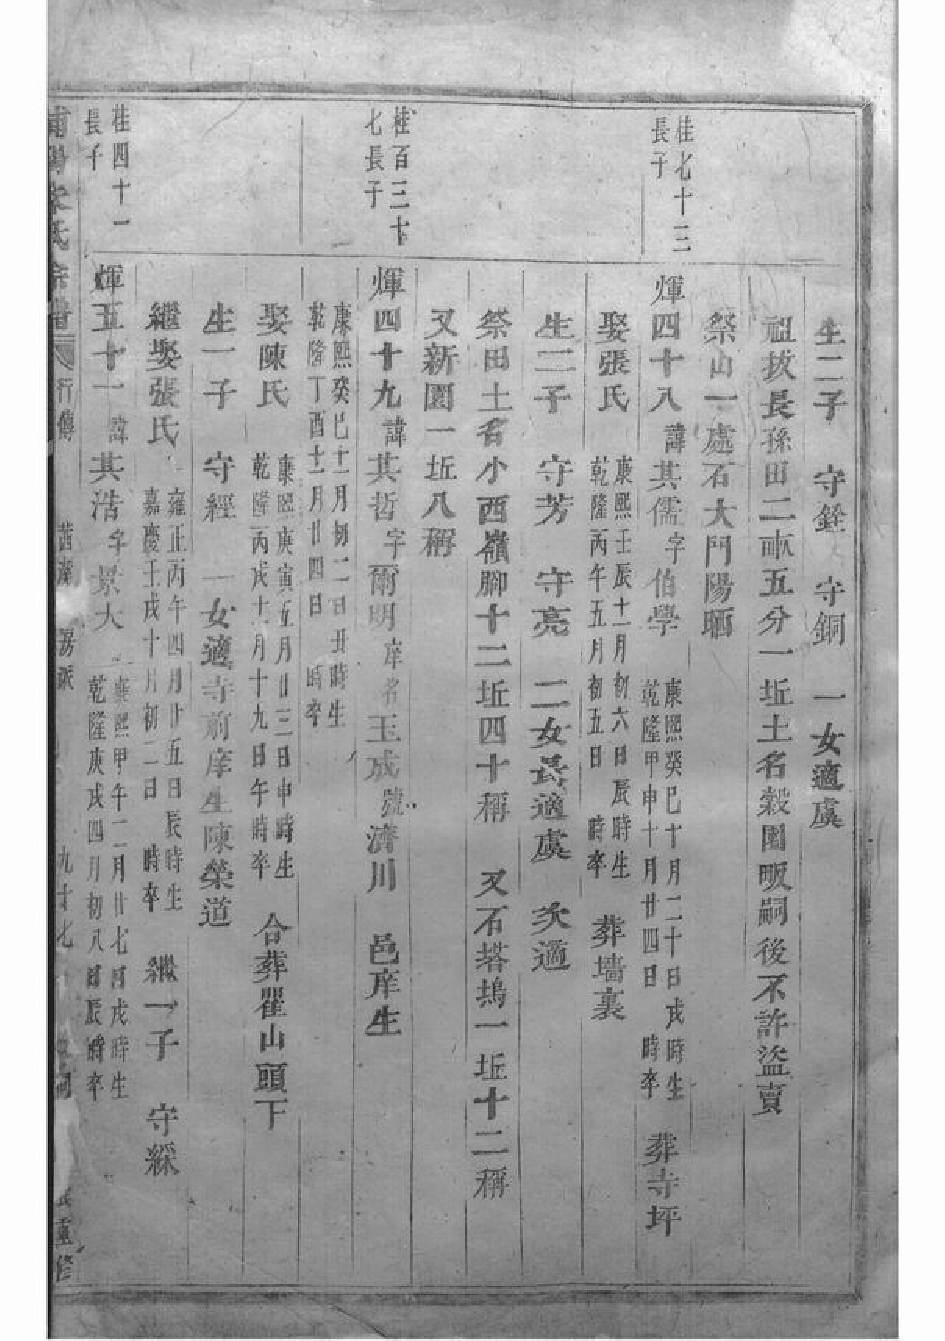 生二子 守銓 守銅 一女適虞
祖拔長孫田二畝五分一坵土名穀園畈嗣後不許盜賣
祭山一處石大門陽晒
桂七十三
長子
煇四十八諱其儒字伯學 康熙癸巳十月二十日戌時生 乾隆甲申十月廿四日 時卒 葬寺坪
娶張氏 康熙壬辰十二月初六日辰時生 乾隆丙午五月初五日 時卒 葬墻裏
生二子 守芳 守亮 二女長適虞 次適
祭田土名小西嶺腳十二坵四十稱 又石塔塢一坵十二稱
又新園一坵八稱
桂百三十
七長子
煇四十九諱其哲字爾明庠名玉成號濟川 邑庠生
康熙癸巳十一月初二日丑時生
乾隆丁酉十一月廿四日 時卒
娶陳氏 康熙庚寅五月廿三日申時生 乾隆丙戌十二月十九日午時卒 合葬瞿山頭下
生一子 守經 一女適寺前庠生陳榮道
繼娶張氏 雍正丙午四月廿五日辰時生 嘉慶壬戌十月初二日 時卒 繼一子 守綵
桂四十一
長子
煇五十一諱其浩字景大 康熙甲午二月廿七日戌時生 乾隆庚戌四月初八日辰時卒
氏宗譜 行傳 九十七 重修